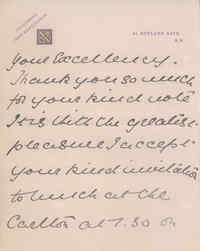 RUTLAND GATE,
S.W.
Your Excellency.
Thank you so much
for your kind note
It is with the greatest
pleasure I accept
your kind invitation
to lunch at the
Carlton at 1.30 on